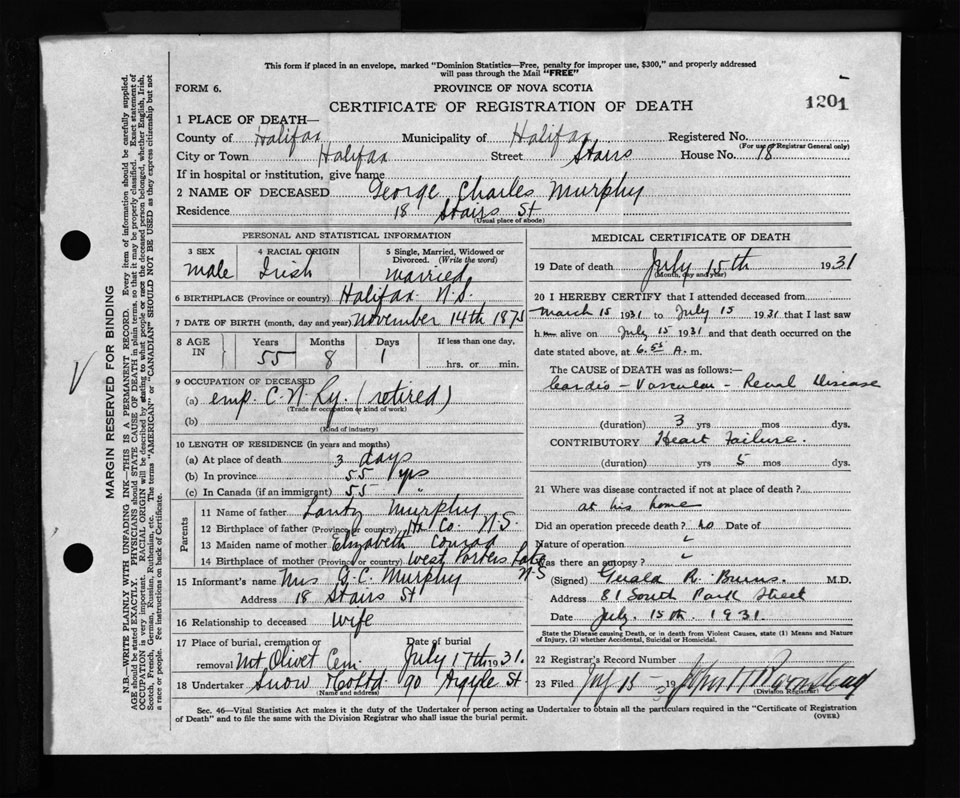 This form if placed in an envelope, marked "Dominion Statistics—Free, penalty for improper use, $300," and properly addressed
will pass through the Mail "FREE"
FORM 6.
PROVINCE OF NOVA SCOTIA
CERTIFICATE OF REGISTRATION OF DEATH
1201
1 PLACE OF DEATH—
County of Halifax Municipality of Halifax Registered No.
(For use Registrar General only)
City or Town Halifax Street Stairs House No. 18
If in hospital or institution, give name
2 NAME OF DECEASED George Charles Murphy
Residence 18 Stairs St
(Usual place of abode)
PERSONAL AND STATISTICAL INFORMATION
3 SEX 4 RACIAL ORIGIN 5 Single, Married, Widowed or
Divorced. (Write the word)
Male Irish married
6 BIRTHPLACE (Province or country) Halifax N.S.
7 DATE OF BIRTH (month, day and year) November 14th 1875
8 AGE IN Years Months Days If less than one day,
55 8 1 hrs. or min.
9 OCCUPATION OF DECEASED
(a) emp. C.N.Ry. (retired)
(Trade or occupation or kind of work)
(b)
(Kind of industry)
10 LENGTH OF RESIDENCE (in years and months)
(a) At place of death 3 days
(b) In province 55 yrs
(c) In Canada (if an immigrant) 55 "
Parents
11 Name of father Murphy
12 Birthplace of father (Province or country) Hx Co. N.S.
13 Maiden name of mother Elizabeth Conrad
14 Birthplace of mother (Province or country) West Porters Lake
N.S
15 Informant's name Mrs G.C. Murphy
Address 18 Stairs St
16 Relationship to deceased wife
17 Place of burial, cremation or Date of burial
removal Mt Olivet Cem. July 17th 1931.
18 Undertaker Snow & Co Ltd 90 Argyle St
(Name and address)
MEDICAL CERTIFICATE OF DEATH
19 Date of death July 15th 1931
(Month, day and year)
20 I HEREBY CERTIFY that I attended deceased from
March 15 1931 to July 15 1931 that I last saw
him alive on July 15 1931 and that death occurred on the
date stated above, at 6.55 A. m.
The CAUSE of DEATH was as follows:—
Cardio - Vascular - Renal Disease
(duration) 3 yrs mos dys.
CONTRIBUTORY Heart Failure.
(duration) yrs 5 mos dys.
21 Where was disease contracted if not at place of death?
at his home
Did an operation precede death? no Date of
Nature of operation "
Was there an autopsy? "
(Signed) Gerald R. Burns. M.D.
Address 81 South Park Street
Date July. 15th. 1931.
State the Disease causing Death, or in death from Violent Causes, state (1) Means and Nature
of Injury, (2) whether Accidental, Suicidal or Homicidal.
22 Registrar's Record Number
23 Filed 15 19
(Division Registrar)
Sec. 46—Vital Statistics Act makes it the duty of the Undertaker or person acting as Undertaker to obtain all the particulars required in the "Certificate of Registration
of Death" and to file the same with the Division Registrar who shall issue the burial permit.
(OVER)
MARGIN RESERVED FOR BINDING
N.B.—WRITE PLAINLY WITH UNFADING INK—THIS IS A PERMANENT RECORD. Every item of information should be carefully supplied.
AGE should be stated EXACTLY. PHYSICIANS should STATE CAUSE OF DEATH in plain terms, so that it may be properly classified. Exact statement of
OCCUPATION is very important. RACIAL ORIGIN will be described by stating to what people or race the deceased person belonged, whether English, Irish,
Scotch, French, German, Russian, Ruthenian, etc. The terms "AMERICAN" or "CANADIAN" SHOULD NOT BE USED as they express citizenship but not
a race or people. Fee instructions on back of Certificate.